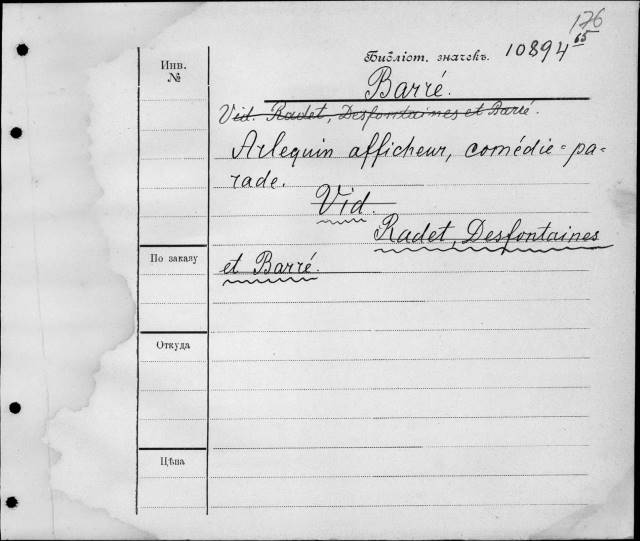 176
Библіот. значекъ. 10894 65
Инв.
№
Barré.
Vid. Radet, Desfontaines et Barré.
Arlequin afficheur, comédie=pa-
rade.
Vid.
Radet, Desfontaines
По заказу
et Barré.
Откуда
Цѣна